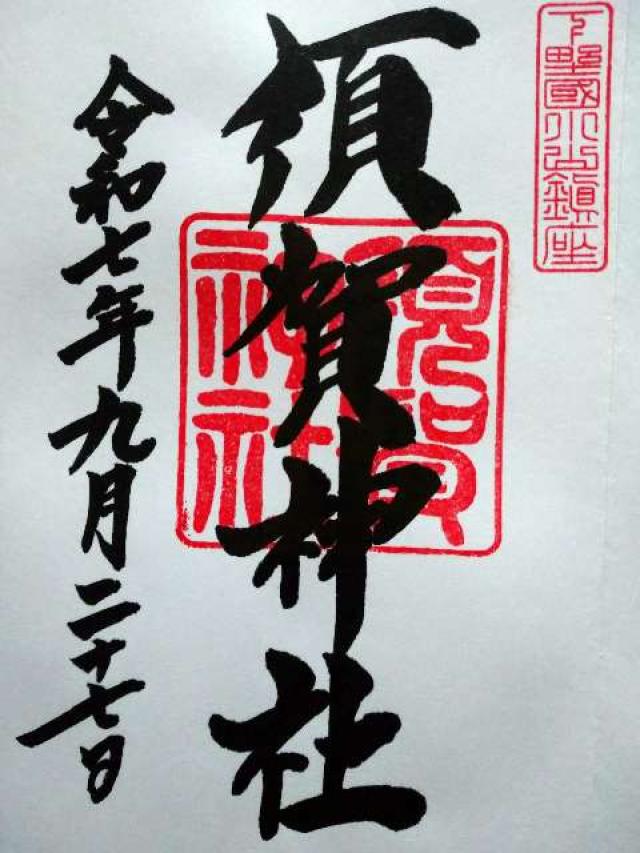 下野國小山鎮座
須賀神社
須賀神社
令和七年九月二十七日